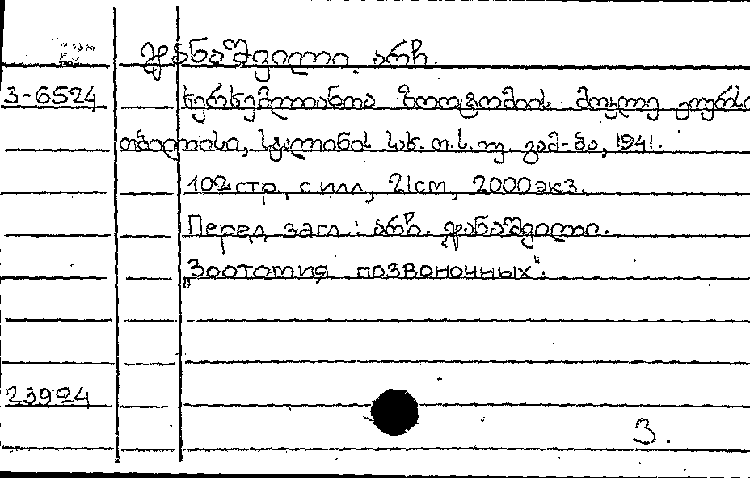 ჯანაშვილი, არჩ.
3-6524 ხერხემლიანთა ზოოტომიის მოკლე კურსი
თბილისი, სტალინის სახ. თ.ს.უ. გამ-ბა, 1941.
102 стр, с илл, 21 см, 2000 экз.
Перед загл: არჩ. ჯანაშვილი.
"Зоотомия позвоночных".
23924
3.